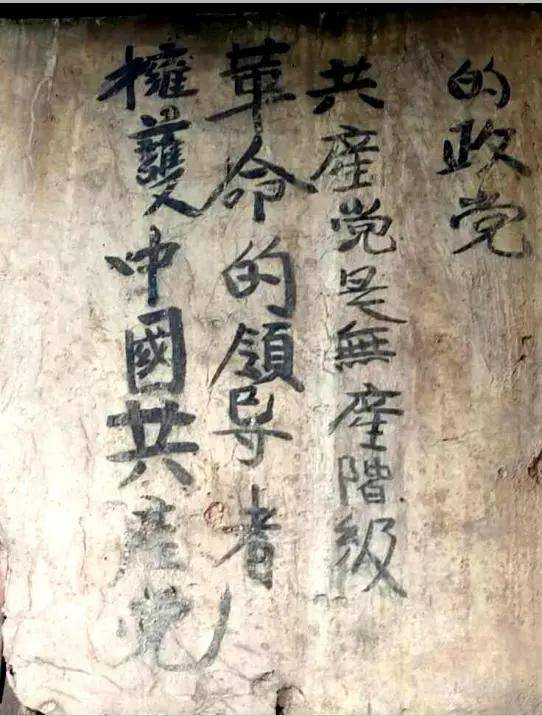 擁護中國共產党
革命的領导者
共產党是無產階級
的政党